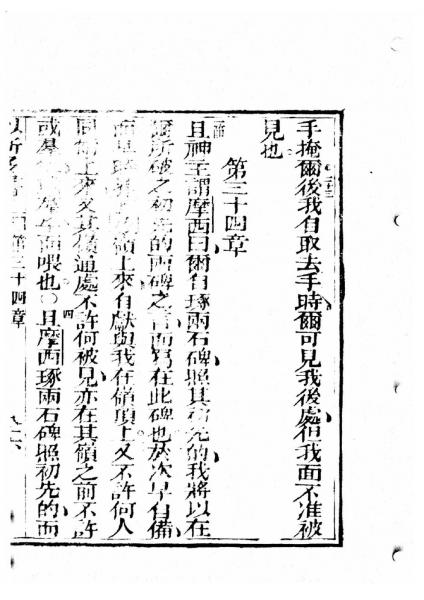 手掩爾後我自取去手時爾可見我後處但我面不准被
見也
第三十四章
且神主謂摩西曰爾自琢兩石碑照其初先的我將以在
爾所破之初先的兩碑之言而寫在此碑也於次早自備
而早 嶺上來自獻與我在嶺頂上又不許何人
同爾上來又其嶺通處不許何被見亦在其嶺之前不許
或羣 羣 而喂也○且摩西琢兩石碑照初先的而
四
第三十四章